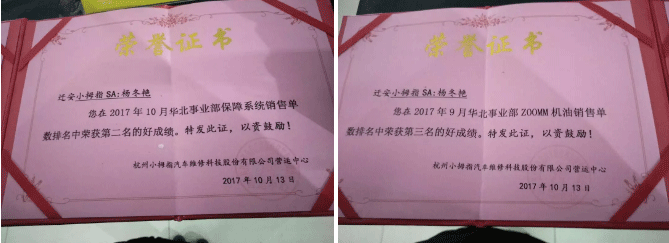 荣誉证书
迁安小拇指 SA:杨冬艳
您在 2017 年 10 月华北事业部保障系统销售单
数排名中荣获第二名的好成绩。特发此证，以资鼓励！
杭州小拇指汽车维修科技股份有限公司营运中心
2017 年 10 月 13 日
荣誉证书
迁安小拇指 SA:杨冬艳
您在 2017 年 9 月华北事业部 ZOOMM 机油销售单
数排名中荣获第三名的好成绩。特发此证，以资鼓励！
杭州小拇指汽车维修科技股份有限公司营运中心
2017 年 10 月 13 日